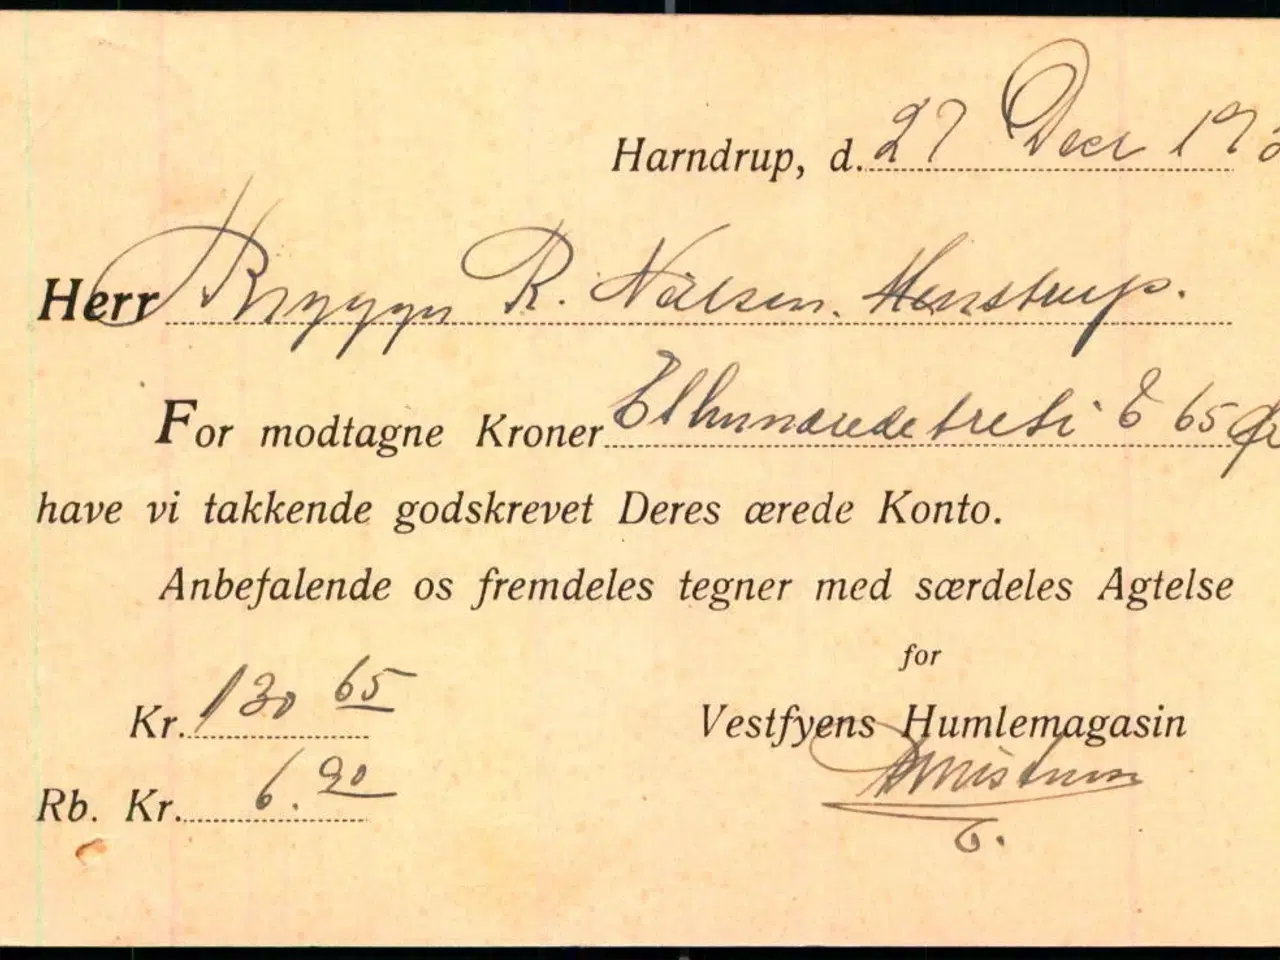 Harndrup, d. 27 Decr 193
Herr Brygger R. Nielsen. Henstrup.
For modtagne Kroner Ethundredetreti & 65 Ør
have vi takkende godskrevet Deres ærede Konto.
Anbefalende os fremdeles tegner med særdeles Agtelse
for
Kr. 130 65
Vestfyens Humlemagasin
Rb. Kr. 6.90